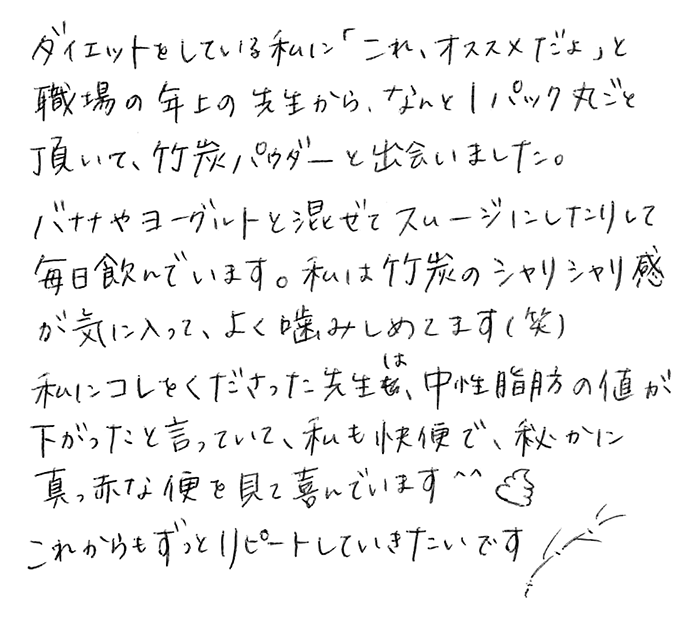 ダイエットをしている私に「これ、オススメだよ」と
職場の年上の先生から、なんと1パック丸ごと
頂いて、竹炭パウダーと出会いました。
バナナやヨーグルトと混ぜてスムージにしたりして
毎日飲んでいます。私は竹炭のシャリシャリ感
が気に入って、よく噛みしめてます(笑)
私にコレをくださった先生は、中性脂肪の値が
下がったと言っていて、私も快便で、秘かに
真っ赤な便を見て喜んでいます^^
これからもずっとリピートしていきたいです